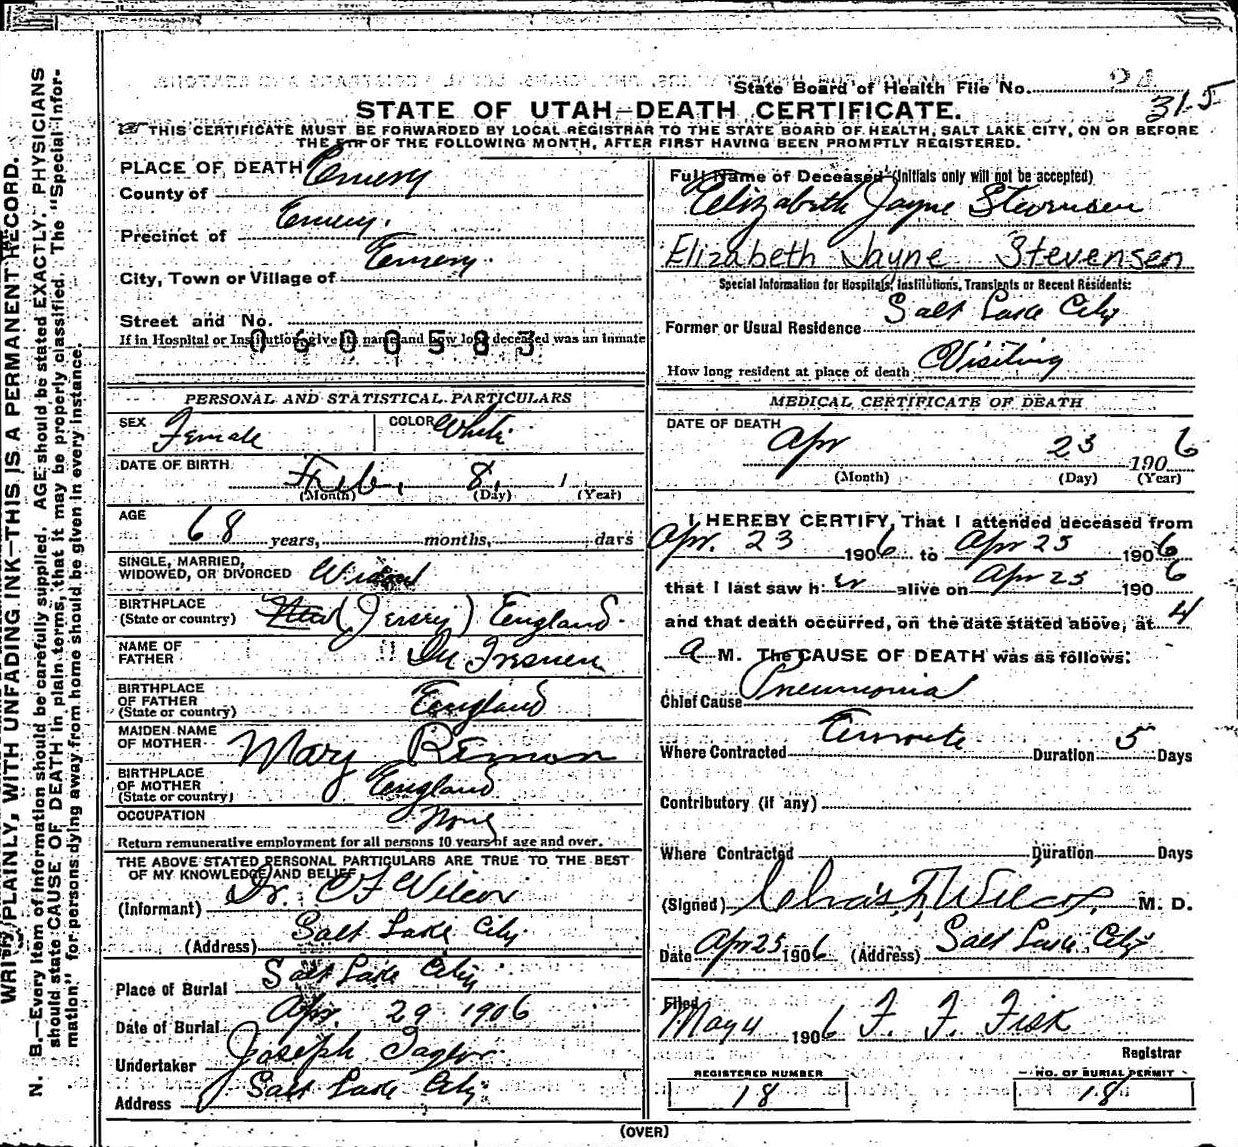 State Board of Health File No. 24
315
STATE OF UTAH—DEATH CERTIFICATE.
THIS CERTIFICATE MUST BE FORWARDED BY LOCAL REGISTRAR TO THE STATE BOARD OF HEALTH, SALT LAKE CITY, ON OR BEFORE
THE 5TH OF THE FOLLOWING MONTH, AFTER FIRST HAVING BEEN PROMPTLY REGISTERED.
WRITE PLAINLY, WITH UNFADING INK—THIS IS A PERMANENT RECORD.
N. B.—Every item of information should be carefully supplied. AGE should be stated EXACTLY. PHYSICIANS
should state CAUSE OF DEATH in plain terms, that it may be properly classified. The "Special Infor-
mation," for persons dying away from home should be given in every instance.
PLACE OF DEATH
County of Emery
Precinct of Emery.
City, Town or Village of Emery.
Street and No.
If in Hospital or Institution, give its name and how long deceased was an inmate
0600583
PERSONAL AND STATISTICAL PARTICULARS
SEX Female COLOR White
DATE OF BIRTH Feb. 8, 1
(Month) (Day) (Year)
AGE 68 years, months, days
SINGLE, MARRIED,
WIDOWED, OR DIVORCED Widow
BIRTHPLACE
(State or country) (Jersey) England.
NAME OF
FATHER
BIRTHPLACE
OF FATHER
(State or country) England
MAIDEN NAME
OF MOTHER Mary Remon
BIRTHPLACE
OF MOTHER
(State or country) England
OCCUPATION None
Return remunerative employment for all persons 10 years of age and over.
THE ABOVE STATED PERSONAL PARTICULARS ARE TRUE TO THE BEST
OF MY KNOWLEDGE AND BELIEF
(Informant) Dr. C F Wilcox
(Address) Salt Lake City
Place of Burial Salt Lake City
Date of Burial Apr. 29 1906
Undertaker Joseph Taylor
Address Salt Lake City
Full Name of Deceased (Initials only will not be accepted)
Elizabeth Jayne Stevensen
Elizabeth Jayne Stevensen
Special Information for Hospitals, Institutions, Transients or Recent Residents:
Former or Usual Residence Salt Lake City
How long resident at place of death Visiting
MEDICAL CERTIFICATE OF DEATH
DATE OF DEATH
Apr 23 1906
(Month) (Day) (Year)
I HEREBY CERTIFY, That I attended deceased from
Apr. 23 1906 to Apr 25 1906
that I last saw her alive on Apr 25 1906
and that death occurred, on the date stated above, at 4
a M. The CAUSE OF DEATH was as follows:
Chief Cause Pneumonia
Where Contracted Enroute Duration 5 Days
Contributory (if any)
Where Contracted Duration Days
(Signed) Chas. F. Wilcox, M. D.
Date Apr 25 1906 (Address) Salt Lake City
Filed
May 4 1906 F. F. Fisk
Registrar
REGISTERED NUMBER
18
NO. OF BURIAL PERMIT
18
(OVER)